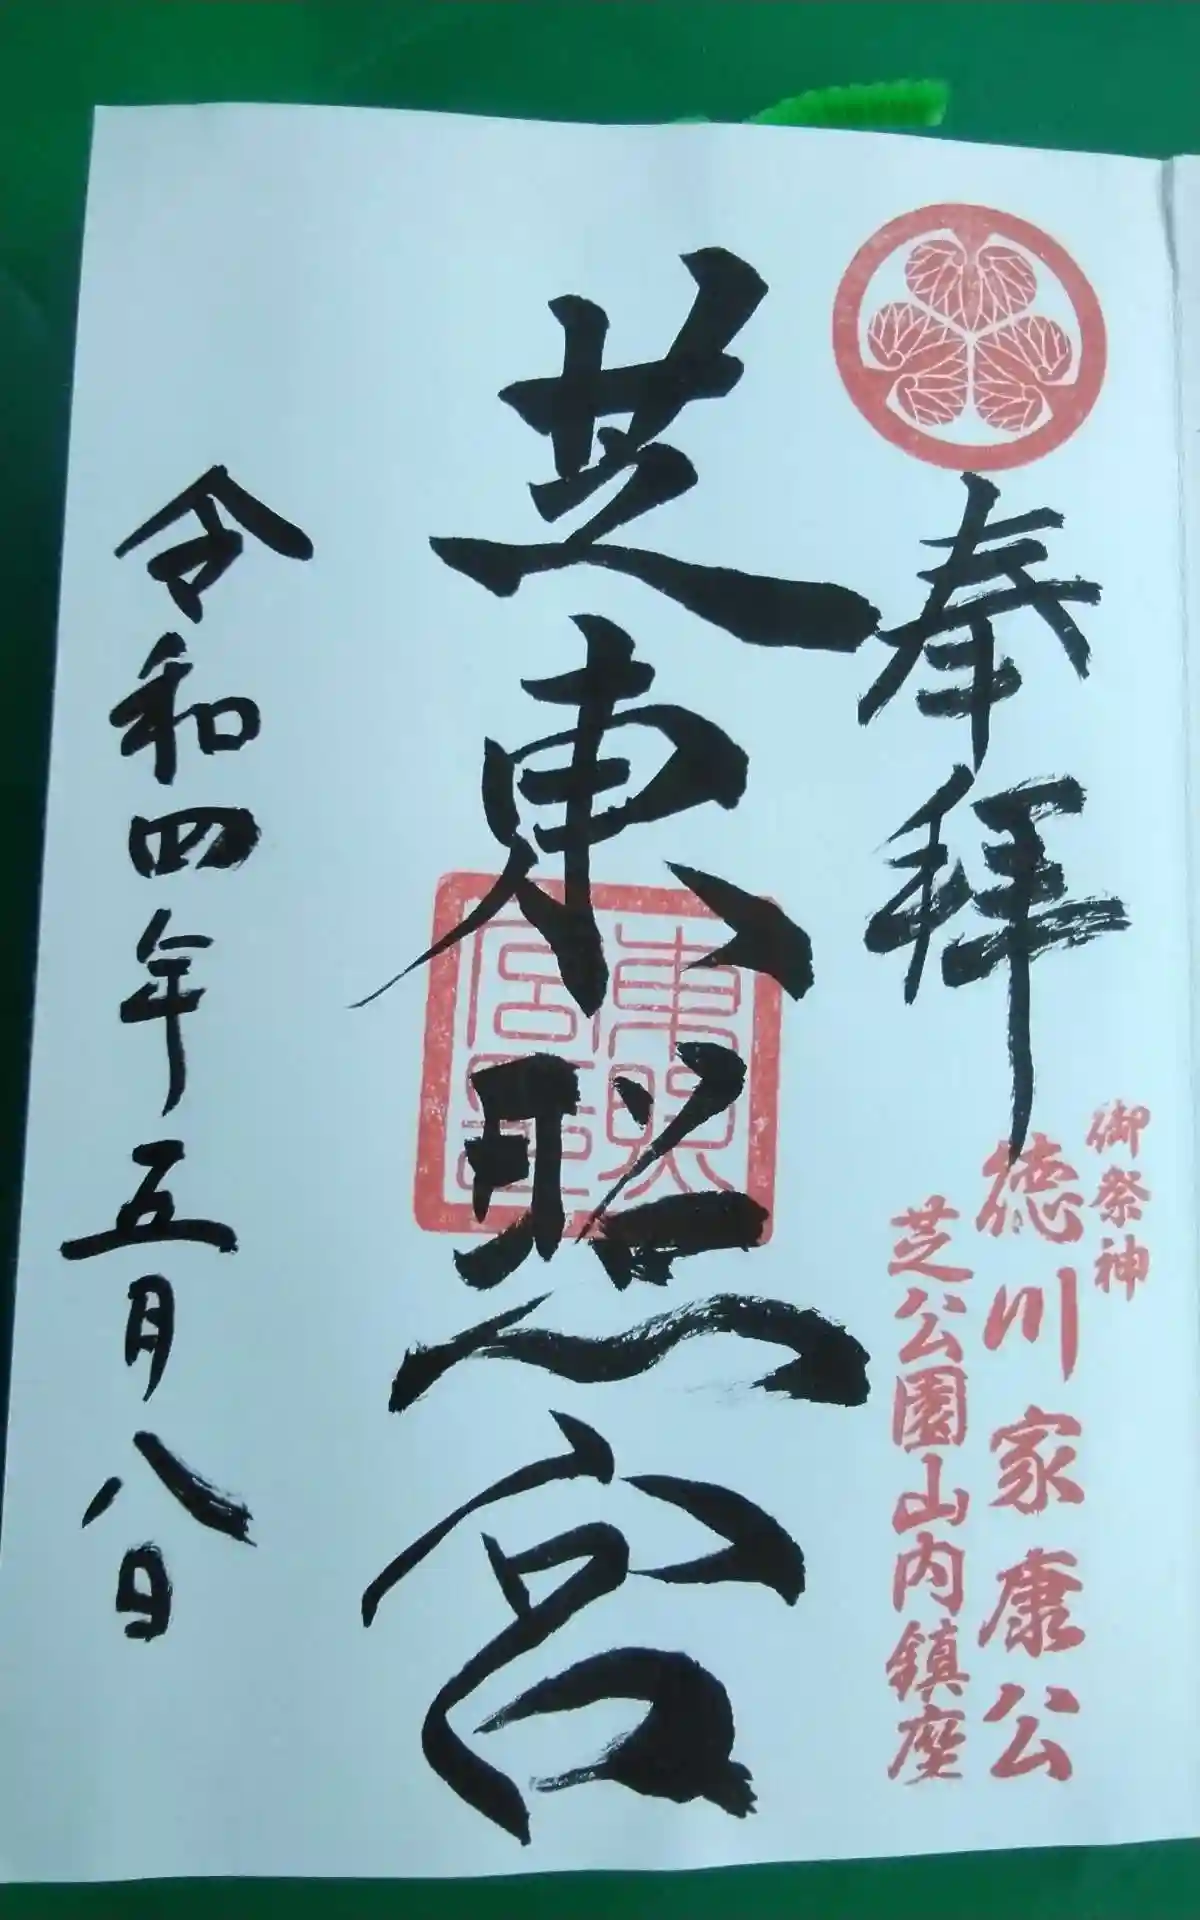 奉拝
御祭神
徳川家康公
芝公園山内鎮座
芝東照宮
東照
宮
令和四年五月八日